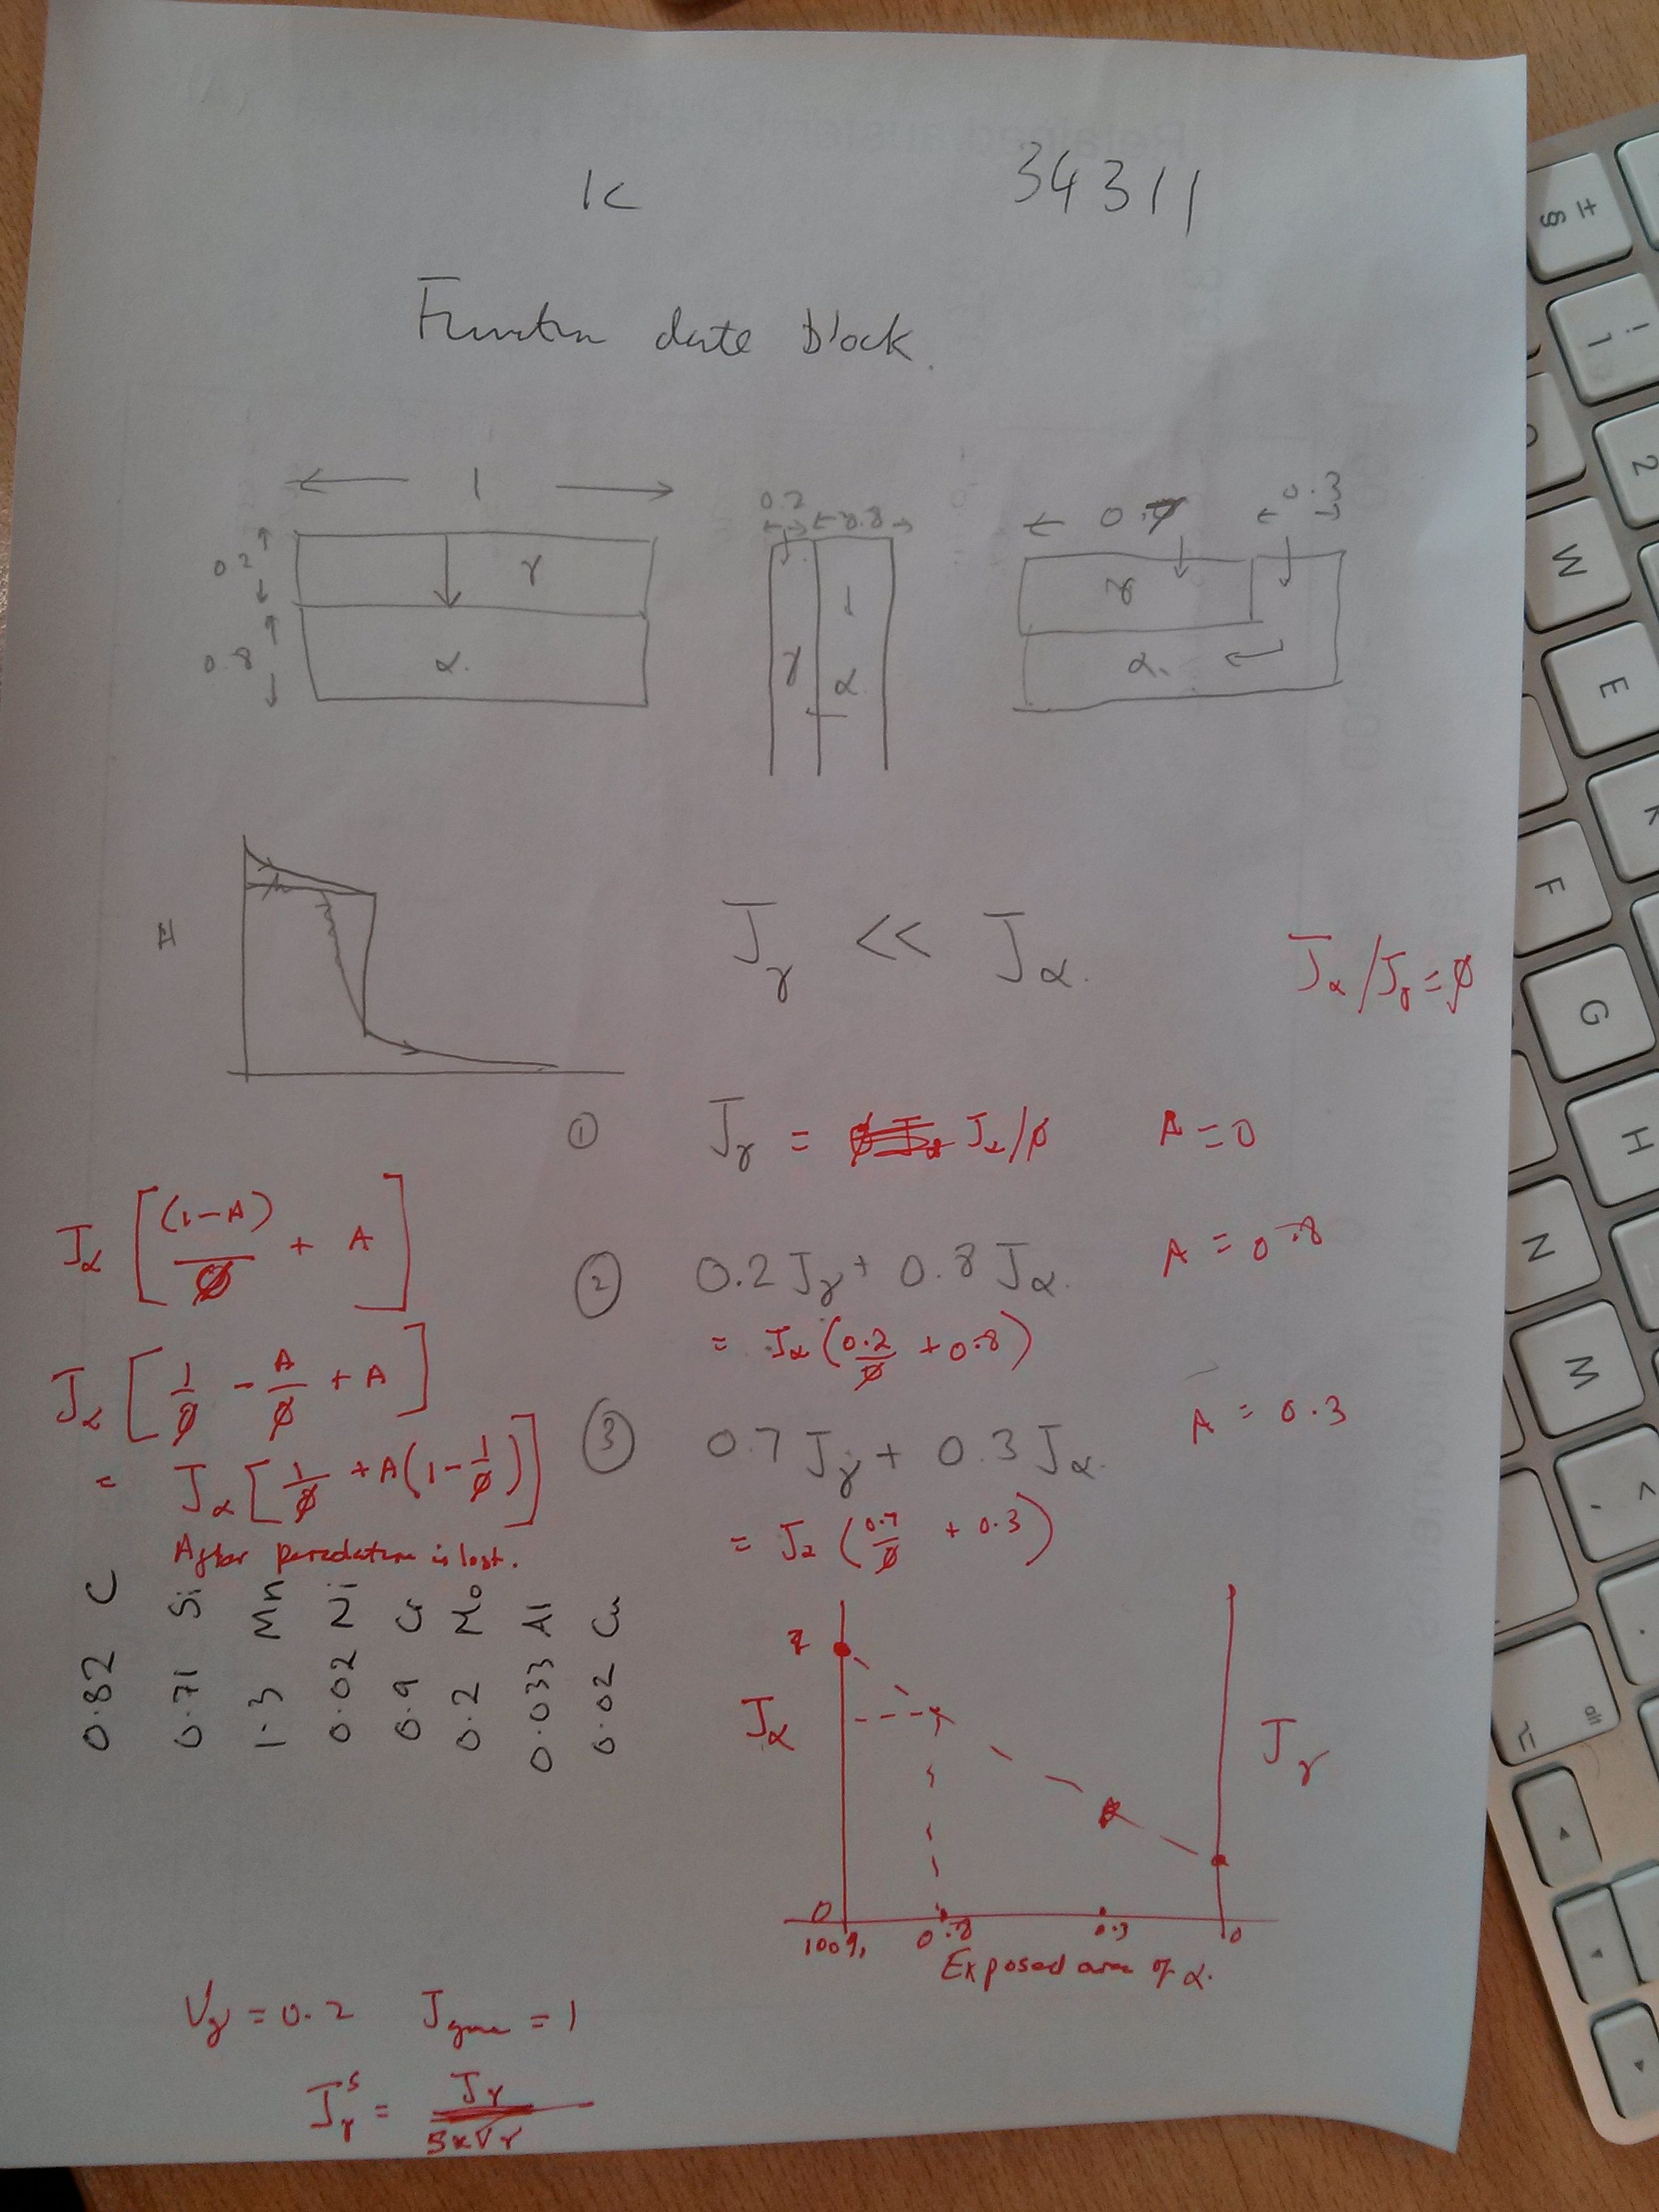 K 34311
Function date block.
← 1 →
0.2 γ
0.8 α.
0.2 0.8
γ α
0.7 0.3
γ
α.
H
J_γ << J_α.
J_α/J_γ = ϕ
① J_γ = J_α/ϕ A = 0
J_α [(1-A)/ϕ + A]
② 0.2 J_γ + 0.8 J_α. A = 0.8
= J_α (0.2/ϕ + 0.8)
J_α [1/ϕ - A/ϕ + A]
③ 0.7 J_γ + 0.3 J_α. A = 0.3
= J_α [1/ϕ + A(1 - 1/ϕ)]
= J_α (0.7/ϕ + 0.3)
After percolation is lost.
0.82 C
0.71 Si
1.3 Mn
0.02 Ni
0.9 Cr
0.2 Mo
0.033 Al
0.02 Cu
J_α J_γ
0
100% 0.8 0.3 0
Exposed area of α.
V_γ = 0.2 J = 1
J_γ^s = J_γ / 5xV_γ
± §
! 1
2
W
E
F
G
H
N
M
<
,
.
alt